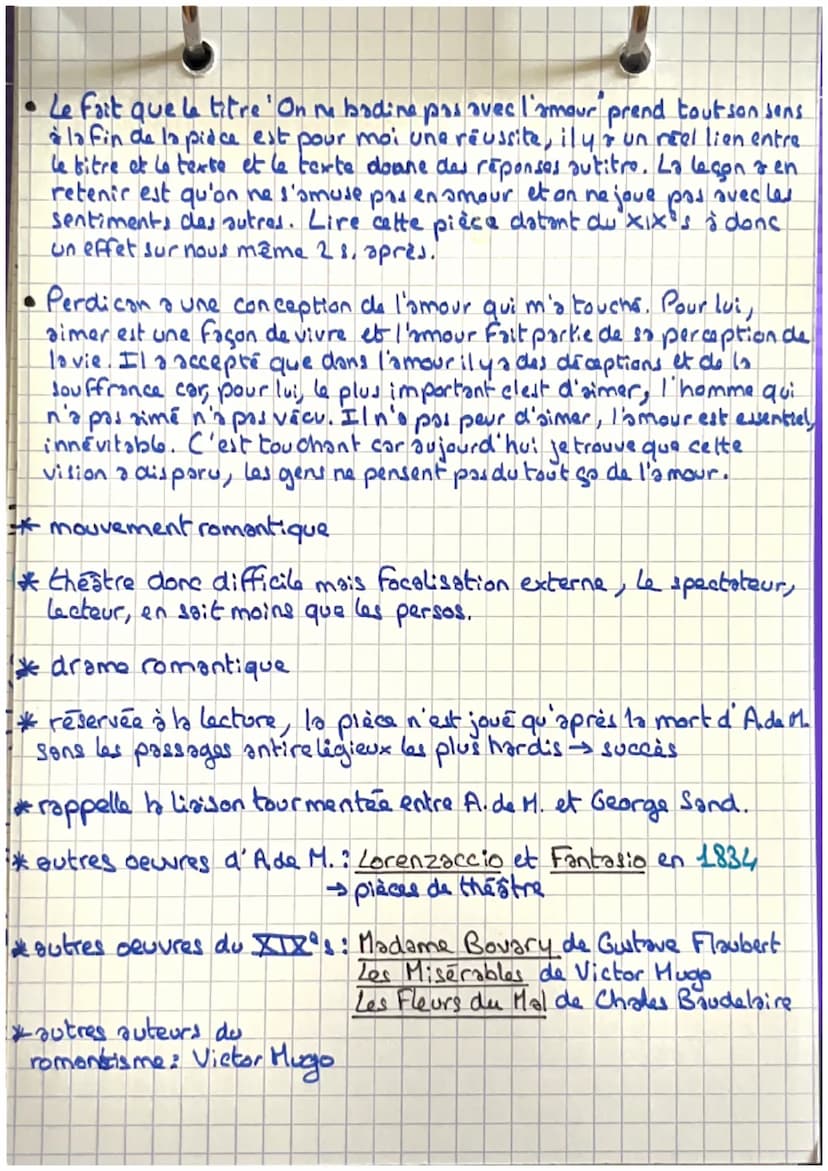 • Le fait que le titre "On ne badine pas avec l'amour" prend tout son sens
à la fin de la pièce est pour moi une réussite, il y a un réel lien entre
le titre et le texte et le texte donne des réponses au titre. La leçon à en
retenir est qu'on ne s'amuse pas en amour et on ne joue pas avec les
sentiments des autres. Lire cette pièce datant du XIXe s à donc
un effet sur nous même 2 s. après.
• Perdican a une conception de l'amour qui m'a touché. Pour lui,
aimer est une façon de vivre et l'amour fait partie de sa perception de
la vie. Il a accepté que dans l'amour il y a des déceptions et de la
souffrance car, pour lui, le plus important c'est d'aimer, l'homme qui
n'a pas aimé n'a pas vécu. Il n'a pas peur d'aimer, l'amour est essentiel,
innévitable. C'est touchant car aujourd'hui je trouve que cette
vision a disparu, les gens ne pensent pas du tout ça de l'amour.
* mouvement romantique
* théâtre donc difficile mais focalisation externe, le spectateur,
lecteur, en sait moins que les persos.
* drame romantique
* réservée à la lecture, la pièce n'est joué qu'après la mort d'A.de M.
sans les passages antireligieux les plus hardis → succès
* rappelle la liaison tourmentée entre A. de M. et George Sand.
* autres oeuvres d'A de M. : Lorenzaccio et Fantasio en 1834
→ pièces de théâtre
* autres oeuvres du XIXe s : Madame Bovary de Gustave Flaubert
Les Misérables de Victor Hugo
Les Fleurs du Mal de Chales Baudelaire
* autres auteurs du
romantisme : Victor Hugo